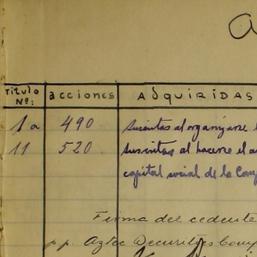 A
Titulo Nº: acciones ADQUIRIDAS
1 a 490 suscritas al organizarse l
11 520 suscritas al hacerse el a
capital social de la Comp
Firma del cedente
p.p. Aztec Securities Comp